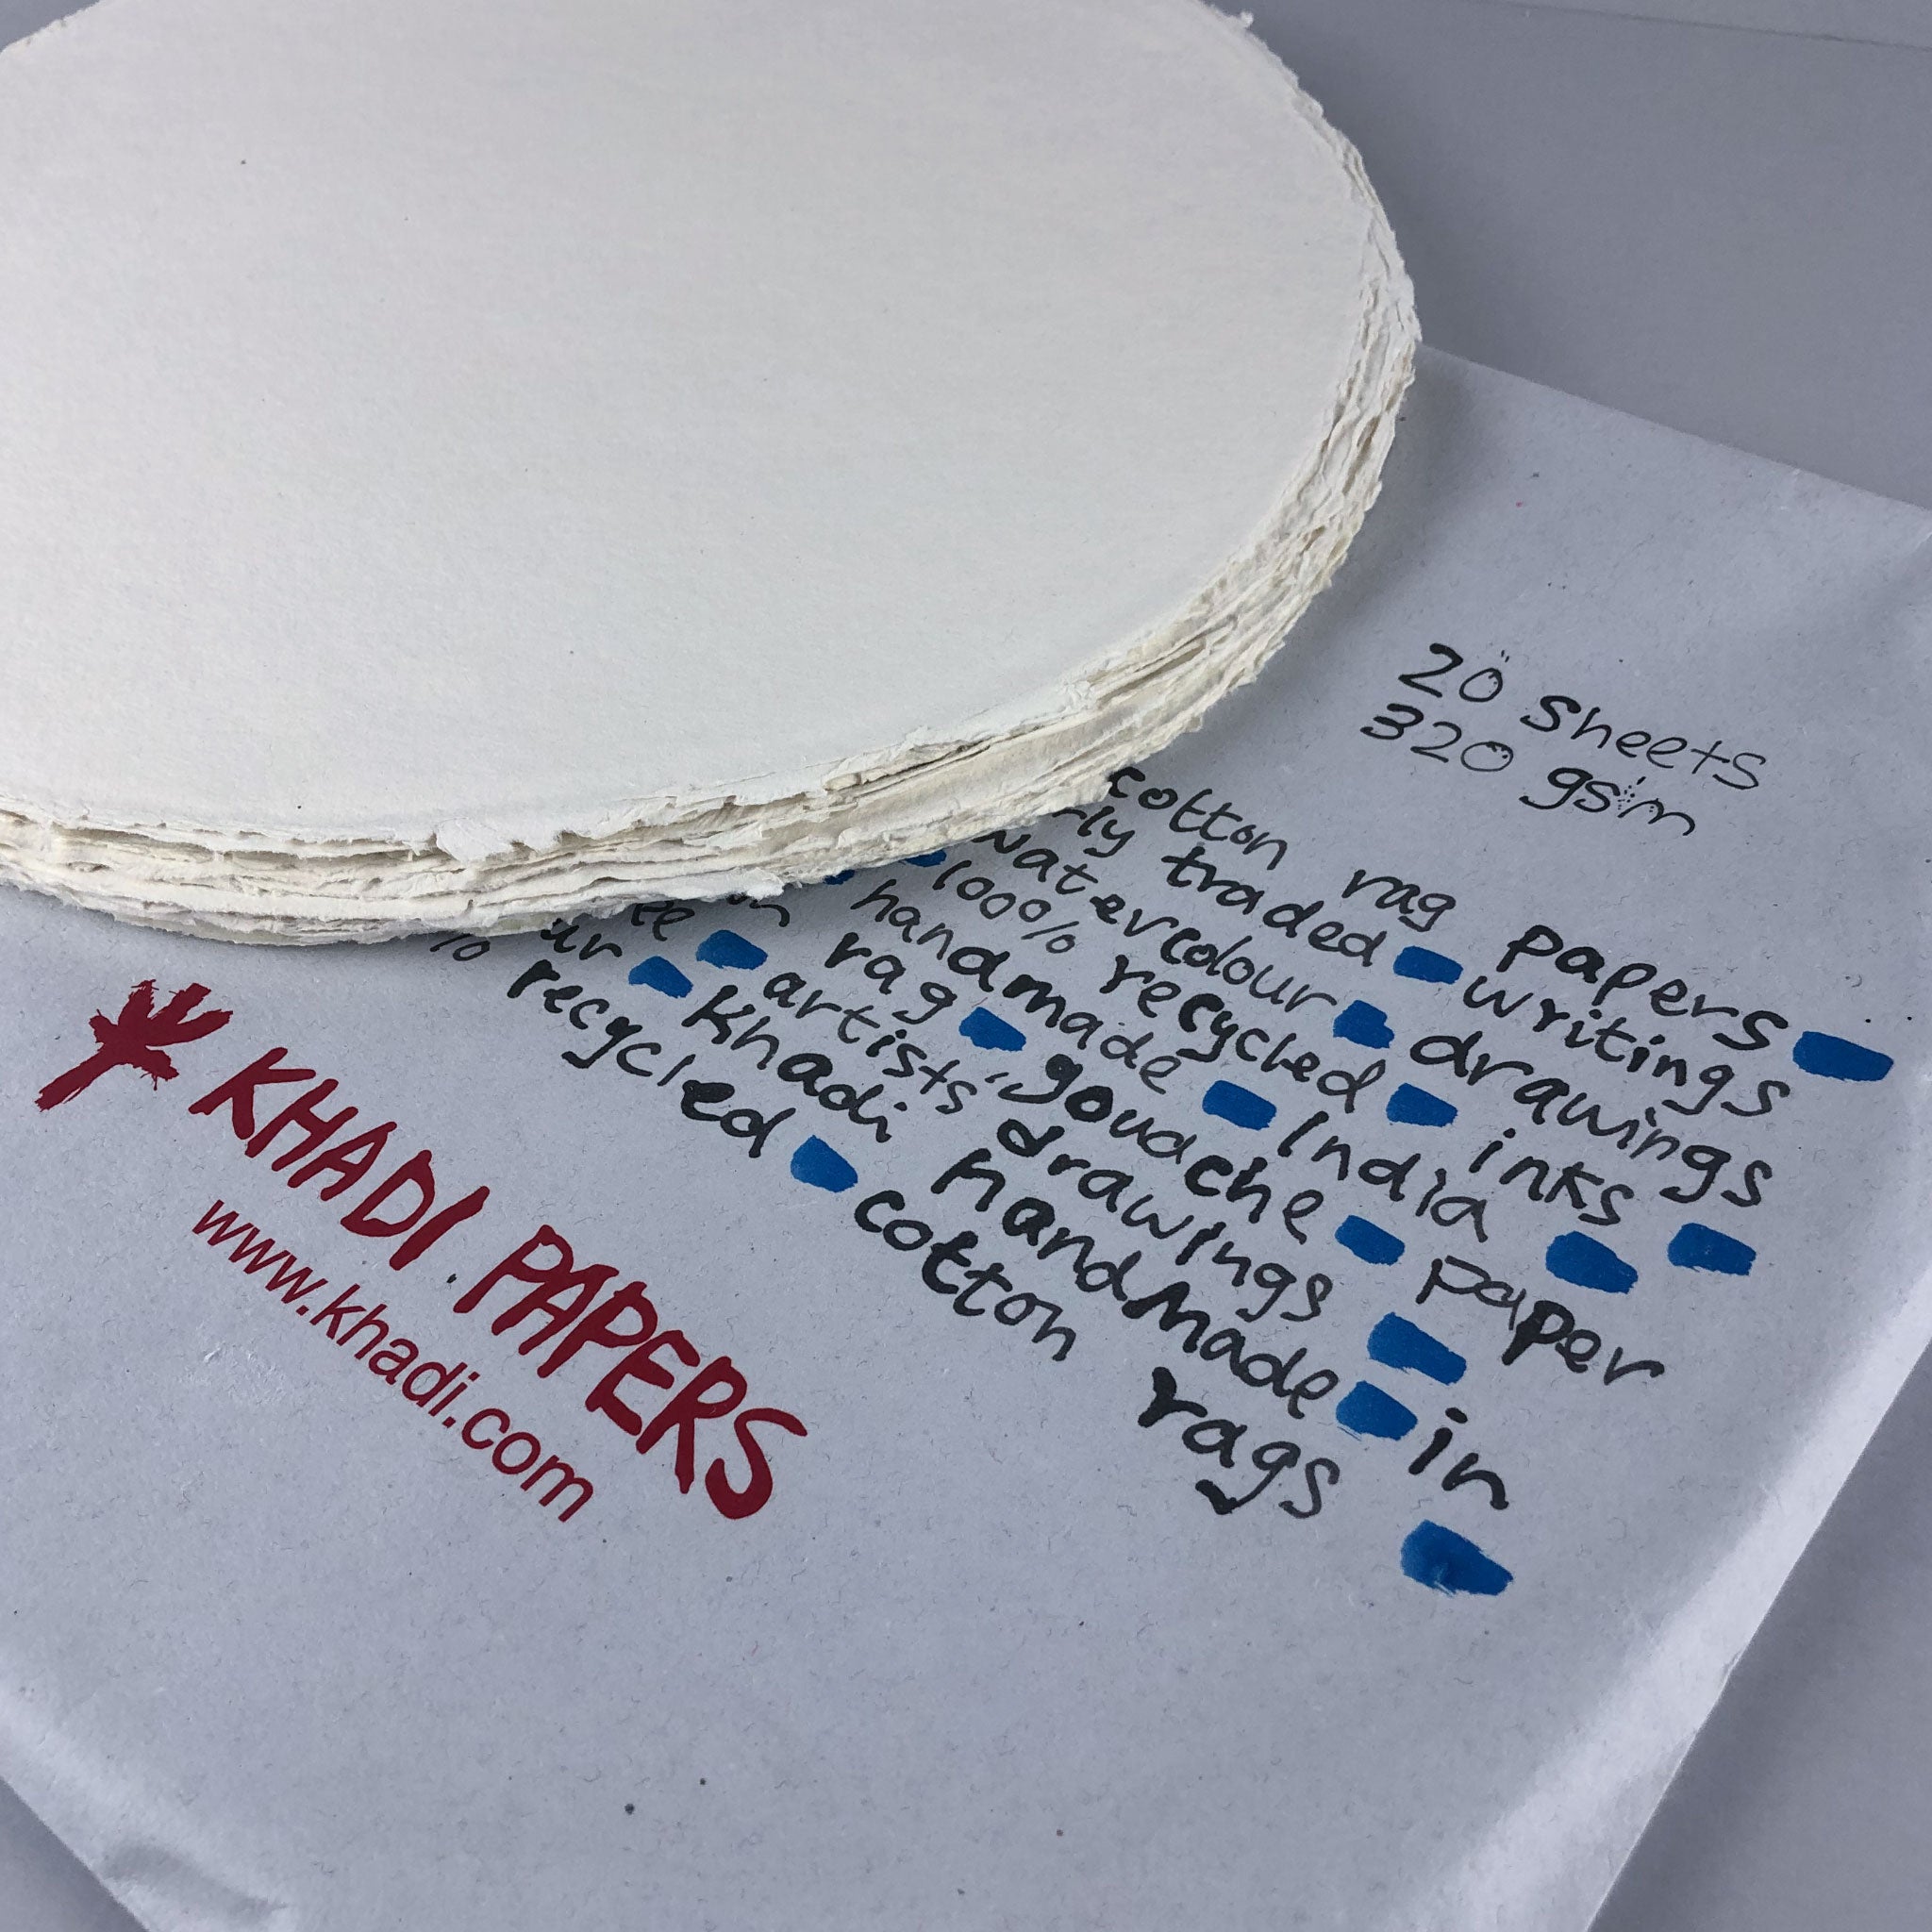 20 sheets
320 gsm
cotton rag papers
rly traded writings
watercolour drawings
100% recycled inks
handmade India
rag gouache paper
artists' drawings
ur Khadi handmade in
% recycled cotton rags
KHADI PAPERS
www.khadi.com